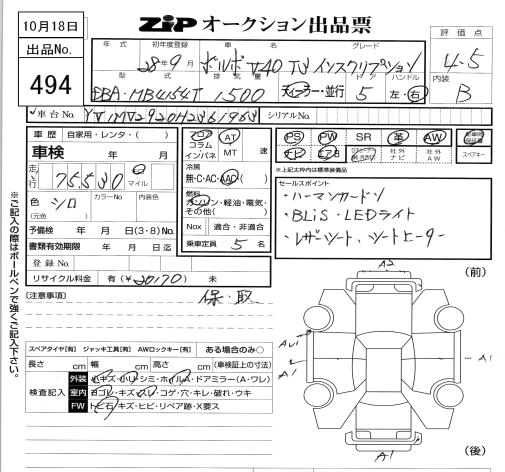 10月18日
ZIP オークション出品票
評価点
4.5
出品No.
494
年式 初年度登録 車名 グレード
28年9月 ボルボ V40 T3 インスクリプション
型式 排気量 ドア ハンドル
DBA-MB4154T 1500 ディーラー・並行 5 左・右
内装
B
車台No. シリアルNo.
車歴 自家用・レンタ・( )
車検 年 月
走行 75,530 km マイル
色 シロ (元色) カラーNo. 内装色
予備検 年 月 日(3・8)No.
書類有効期限 年 月 日迄
登録No.
リサイクル料金 有(¥20170) 未
フロア コラム インパネ
AT MT 速
冷房
無・C・AC・AAC
燃料
ガソリン・軽油・電気・その他( )
Nox 適合・非適合
乗車定員 5 名
PS PW SR 革 AW
ナビ 社外ナビ 社外AW スペアキー
※上記太枠内は標準装備品
セールスポイント
・ハーマンカードン
・BLiS・LEDライト
・レザーシート、シートヒーター
(注意事項) 保・取
※ご記入の際はボールペンで強くご記入下さい。
スペアタイヤ[有] ジャッキ工具[有] AWロックキー[有] ある場合のみ○
長さ cm 幅 cm 高さ cm (車検証上の寸法)
検査記入
外装 小キズ・小リ・シミ・ホイルA・ドアミラー(A・ワレ)
室内 ヨゴレ・キズ・スレ・コゲ・穴・キレ・破れ・ウキ
FW トビ石・キズ・ヒビ・リペア跡・X要ス
(前)
A2
A1
A1
A1
(後)